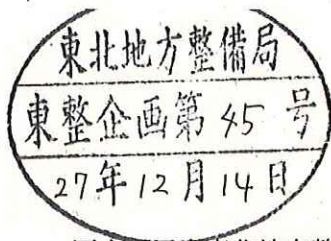 東北地方整備局
東整企画第45号
27年12月14日